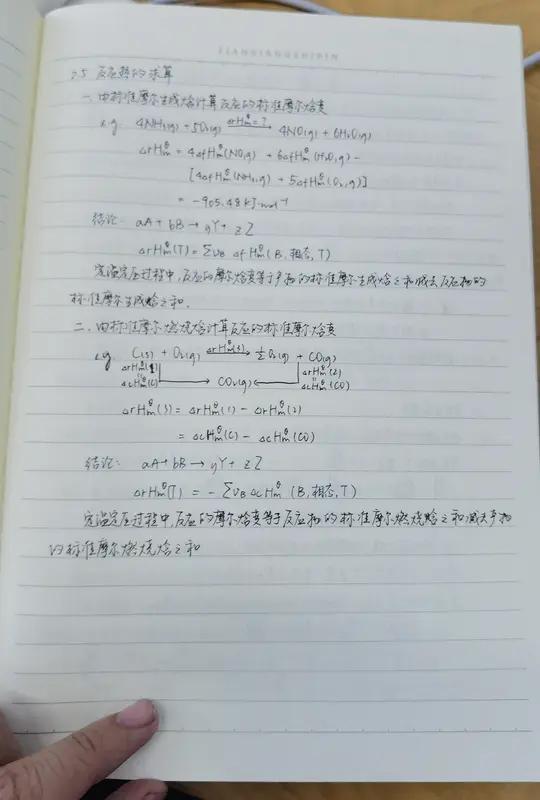 JIANQIANGSHIPIN
2.5 反应热的求算
一、由标准摩尔生成焓计算反应的标准摩尔焓变
e.g. 4NH₃(g) + 5O₂(g) —ΔrHmθ=?→ 4NO(g) + 6H₂O(g)
ΔrHmθ = 4ΔfHmθ(NO,g) + 6ΔfHmθ(H₂O,g) -
[4ΔfHmθ(NH₃,g) + 5ΔfHmθ(O₂,g)]
= -905.48 kJ·mol⁻¹
结论: aA + bB → yY + zZ
ΔrHmθ(T) = ΣνB ΔfHmθ(B,相态,T)
定温定压过程中,反应的摩尔焓变等于产物的标准摩尔生成焓之和减去反应物的
标准摩尔生成焓之和.
二、由标准摩尔燃烧焓计算反应的标准摩尔焓变
e.g. C(s) + O₂(g) —ΔrHmθ(3)→ ½O₂(g) + CO(g)
ΔrHmθ(1) ΔrHmθ(2)
ΔcHmθ(C) → CO₂(g) ← ΔcHmθ(CO)
ΔrHmθ(3) = ΔrHmθ(1) - ΔrHmθ(2)
= ΔcHmθ(C) - ΔcHmθ(CO)
结论: aA + bB → yY + zZ
ΔrHmθ(T) = - ΣνB ΔcHmθ (B,相态,T)
定温定压过程中,反应的摩尔焓变等于反应物的标准摩尔燃烧焓之和减去产物
的标准摩尔燃烧焓之和